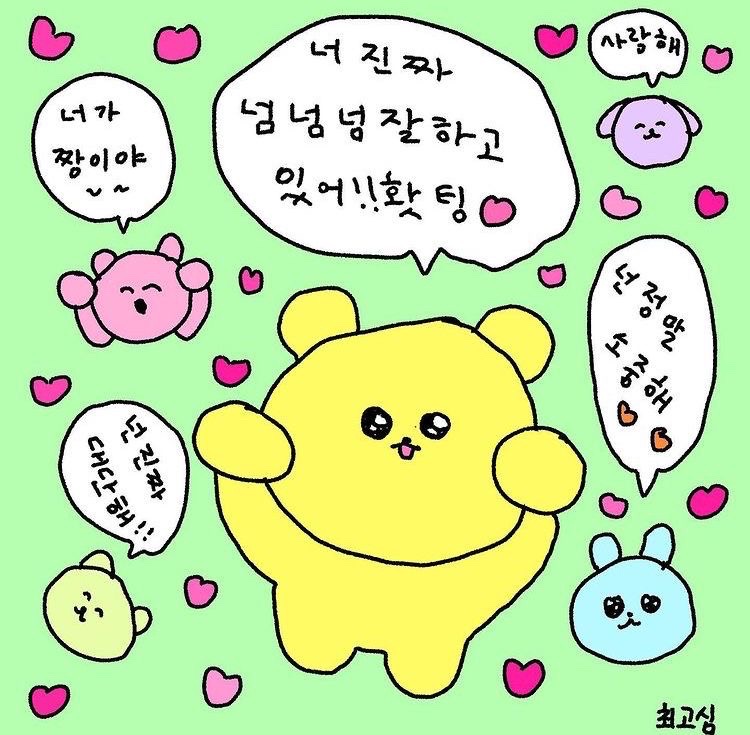 너 진 짜
넘 넘 넝 잘 하 고
있 어!! 홧 팅
너 가
짱 이 야
~ ~
사랑해
넌 정말
소중해
넌 진짜
대단해!!
최고심